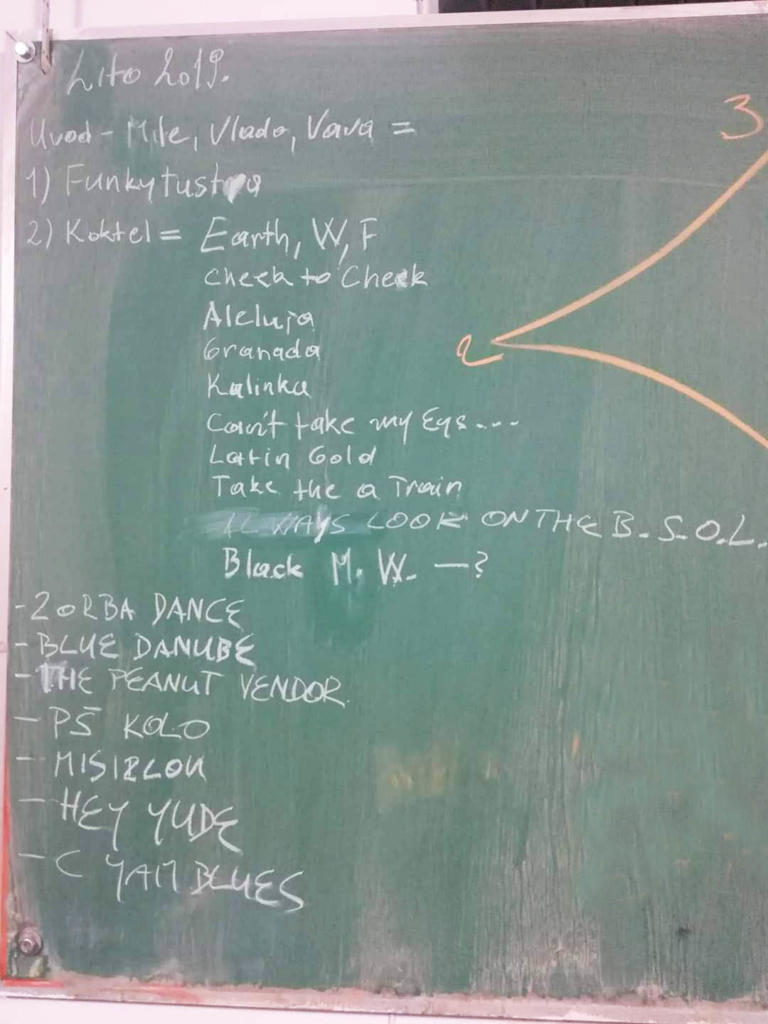 Lito 2019.
Uvod - Mile, Vlado, Vava =
1) Funkytustra
2) Koktel = Earth, W, F
Cheek to Cheek
Aleluja
Granada
Kalinka
Can't take my Eys...
Latin Gold
Take the a Train
ALWAYS LOOK ON THE B.S.O.L.
Black M. W. —?
- ZORBA DANCE
- BLUE DANUBE
- THE PEANUT VENDOR.
- PŠ KOLO
- MISIRLOU
- HEY YUDE
- C YAM BLUES
3
2